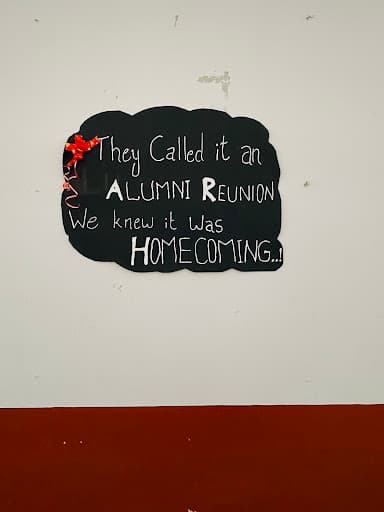 They Called it an
ALUMNI REUNION
We knew it was
HOMECOMING..!